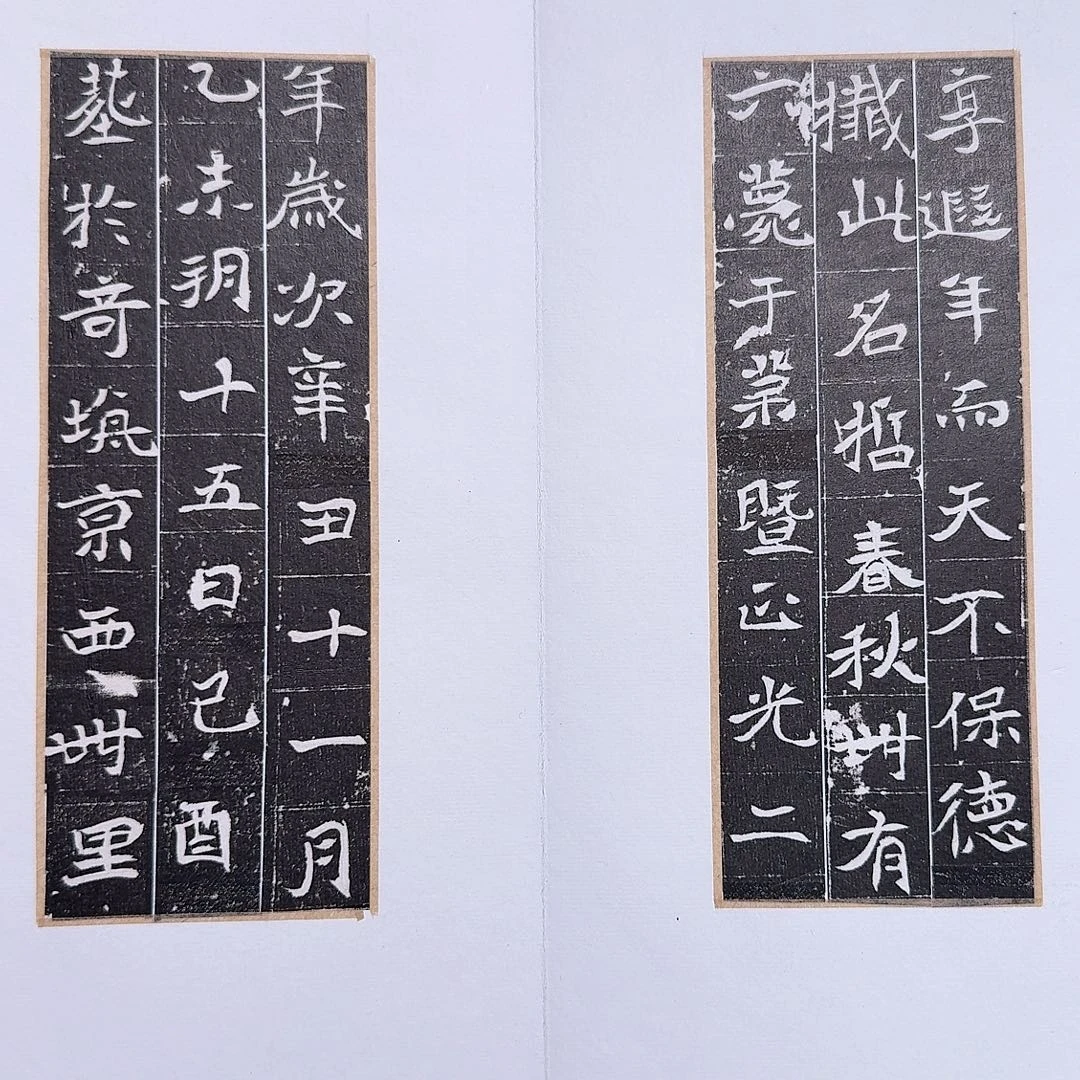 享遐年而天不保德
殲此名哲春秋卌有
六薨于業暨正光二
年歲次辛丑十一月
乙未朔十五日己酉
塟於奇京西卌里